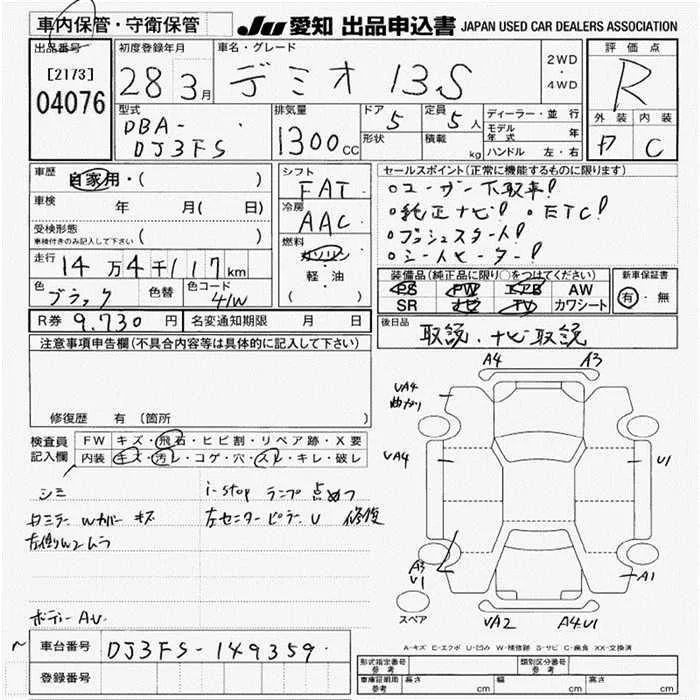 車内保管・守衛保管
JU 愛知 出品申込書 JAPAN USED CAR DEALERS ASSOCIATION
出品番号
[2173]
04076
初度登録年月
28 3月
車名・グレード
デミオ 13S
2WD
・
4WD
評価点
R
外装 内装
C
型式
DBA-
DJ3FS
排気量
1300cc
ドア 5
形状
定員 5人
積載 kg
ディーラー・並行
モデル年式 年
ハンドル 左・右
車歴
自家用・( )
車検 年 月( 日)
受検形態
車検付きのみ記入して下さい ( )
走行
14万4千117km
色 ブラック 色替 色コード 41W
シフト
FAT
冷房
AAC
燃料
ガソリン
軽・油
( )
セールスポイント(正常に機能するものに限ります)
○ユーザー下取車!
○純正ナビ! ○ETC!
○プッシュスタート!
○シートヒーター!
装備品(純正品に限り○をつけてください)
PS PW エアB AW
SR ナビ TV カワシート
新車保証書
有・無
R券 9.730円 名変通知期限 月 日
後日品
取説、ナビ取説
注意事項申告欄(不具合内容等は具体的に記入して下さい)
修復歴 有 (箇所 )
検査員記入欄
FW キズ・飛石・ヒビ割・リペア跡・X要
内装 キズ・汚レ・コゲ・穴・スレ・キレ・破レ
シミ i-stop ランプ点めつ
左センターピラーU 修復
ボデーAU
A4 A3
UA4
曲がり
UA4 U1
A3
U1
A1
UA2 A4U1
スペア
A-キズ E-エクボ U-凹み W-補修跡 S-サビ C-腐食 XX-交換済
車台番号 DJ3FS-149359
登録番号
形式指定番号
参考
類別区分番号
参考
車庫証明用
参考
長さ cm 幅 cm 高さ cm